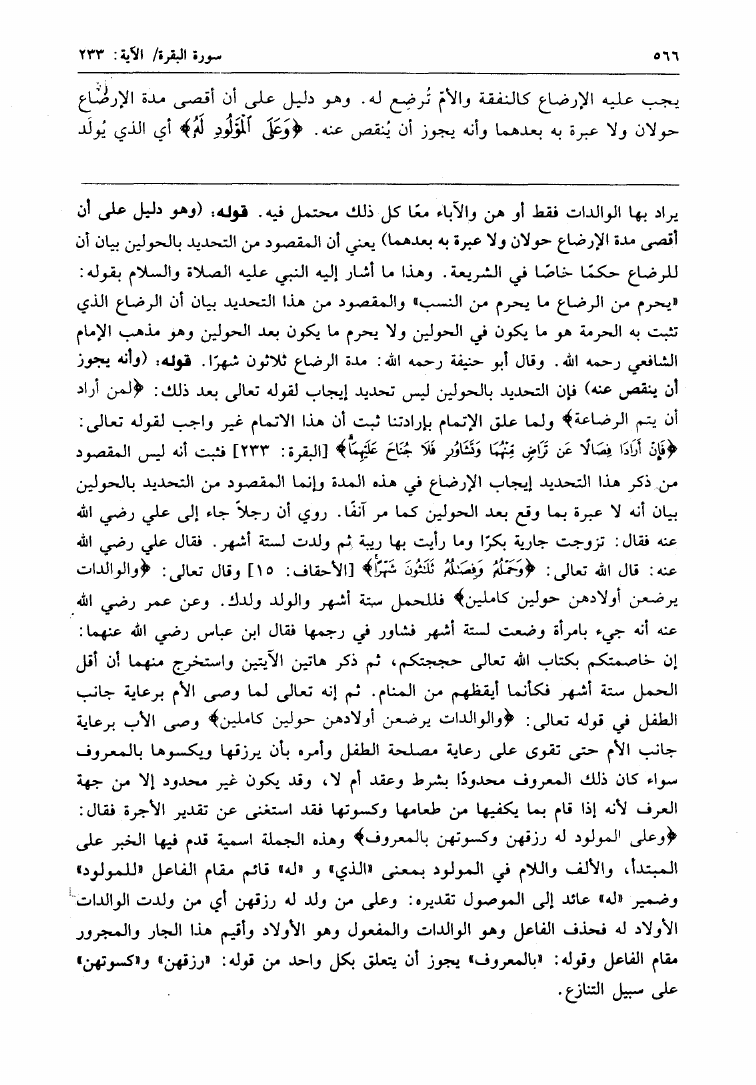 ٥٦٦ سورة البقرة/ الآية: ٢٣٣
يجب عليه الإرضاع كالنفقة والأم تُرضع له. وهو دليل على أن أقصى مدة الإرضاع
حولان ولا عبرة به بعدهما وأنه يجوز أن يُنقص عنه. ﴿وَعَلَى ٱلْمَوْلُودِ لَهُۥ﴾ أي الذي يُولَد
يراد بها الوالدات فقط أو هن والآباء معًا كل ذلك محتمل فيه. قوله: (وهو دليل على أن
أقصى مدة الإرضاع حولان ولا عبرة به بعدهما) يعني أن المقصود من التحديد بالحولين بيان أن
للرضاع حكمًا خاصًا في الشريعة. وهذا ما أشار إليه النبي عليه الصلاة والسلام بقوله:
«يحرم من الرضاع ما يحرم من النسب» والمقصود من هذا التحديد بيان أن الرضاع الذي
تثبت به الحرمة هو ما يكون في الحولين ولا يحرم ما يكون بعد الحولين وهو مذهب الإمام
الشافعي رحمه الله. وقال أبو حنيفة رحمه الله: مدة الرضاع ثلاثون شهرًا. قوله: (وأنه يجوز
أن ينقص عنه) فإن التحديد بالحولين ليس تحديد إيجاب لقوله تعالى بعد ذلك: ﴿لمن أراد
أن يتم الرضاعة﴾ ولما علق الإتمام بإرادتنا ثبت أن هذا الاتمام غير واجب لقوله تعالى:
﴿فَإِنْ أَرَادَا فِصَالًا عَن تَرَاضٍ مِّنْهُمَا وَتَشَاوُرٍ فَلَا جُنَاحَ عَلَيْهِمَا﴾ [البقرة: ٢٣٣] فثبت أنه ليس المقصود
من ذكر هذا التحديد إيجاب الإرضاع في هذه المدة وإنما المقصود من التحديد بالحولين
بيان أنه لا عبرة بما وقع بعد الحولين كما مر آنفًا. روي أن رجلاً جاء إلى علي رضي الله
عنه فقال: تزوجت جارية بكرًا وما رأيت بها ريبة ثم ولدت لستة أشهر. فقال علي رضي الله
عنه: قال الله تعالى: ﴿وَحَمْلُهُ وَفِصَالُهُ ثَلَاثُونَ شَهْرًا﴾ [الأحقاف: ١٥] وقال تعالى: ﴿والوالدات
يرضعن أولادهن حولين كاملين﴾ فللحمل ستة أشهر والولد ولدك. وعن عمر رضي الله
عنه أنه جيء بامرأة وضعت لستة أشهر فشاور في رجمها فقال ابن عباس رضي الله عنهما:
إن خاصمتكم بكتاب الله تعالى حججتكم، ثم ذكر هاتين الآيتين واستخرج منهما أن أقل
الحمل ستة أشهر فكأنما أيقظهم من المنام. ثم إنه تعالى لما وصى الأم برعاية جانب
الطفل في قوله تعالى: ﴿والوالدات يرضعن أولادهن حولين كاملين﴾ وصى الأب برعاية
جانب الأم حتى تقوى على رعاية مصلحة الطفل وأمره بأن يرزقها ويكسوها بالمعروف
سواء كان ذلك المعروف محدودًا بشرط وعقد أم لا، وقد يكون غير محدود إلا من جهة
العرف لأنه إذا قام بما يكفيها من طعامها وكسوتها فقد استغنى عن تقدير الأجرة فقال:
﴿وعلى المولود له رزقهن وكسوتهن بالمعروف﴾ وهذه الجملة اسمية قدم فيها الخبر على
المبتدأ، والألف واللام في المولود بمعنى «الذي» و «له» قائم مقام الفاعل «للمولود»
وضمير «له» عائد إلى الموصول تقديره: وعلى من ولد له رزقهن أي من ولدت الوالدات
الأولاد له فحذف الفاعل وهو الوالدات والمفعول وهو الأولاد وأقيم هذا الجار والمجرور
مقام الفاعل وقوله: «بالمعروف» يجوز أن يتعلق بكل واحد من قوله: «رزقهن» و«كسوتهن»
على سبيل التنازع.